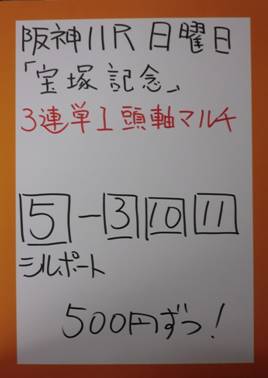 阪神11R 日曜日
「宝塚記念」
3連単1頭軸マルチ
5-3 10 11
シルポート
500円ずつ!